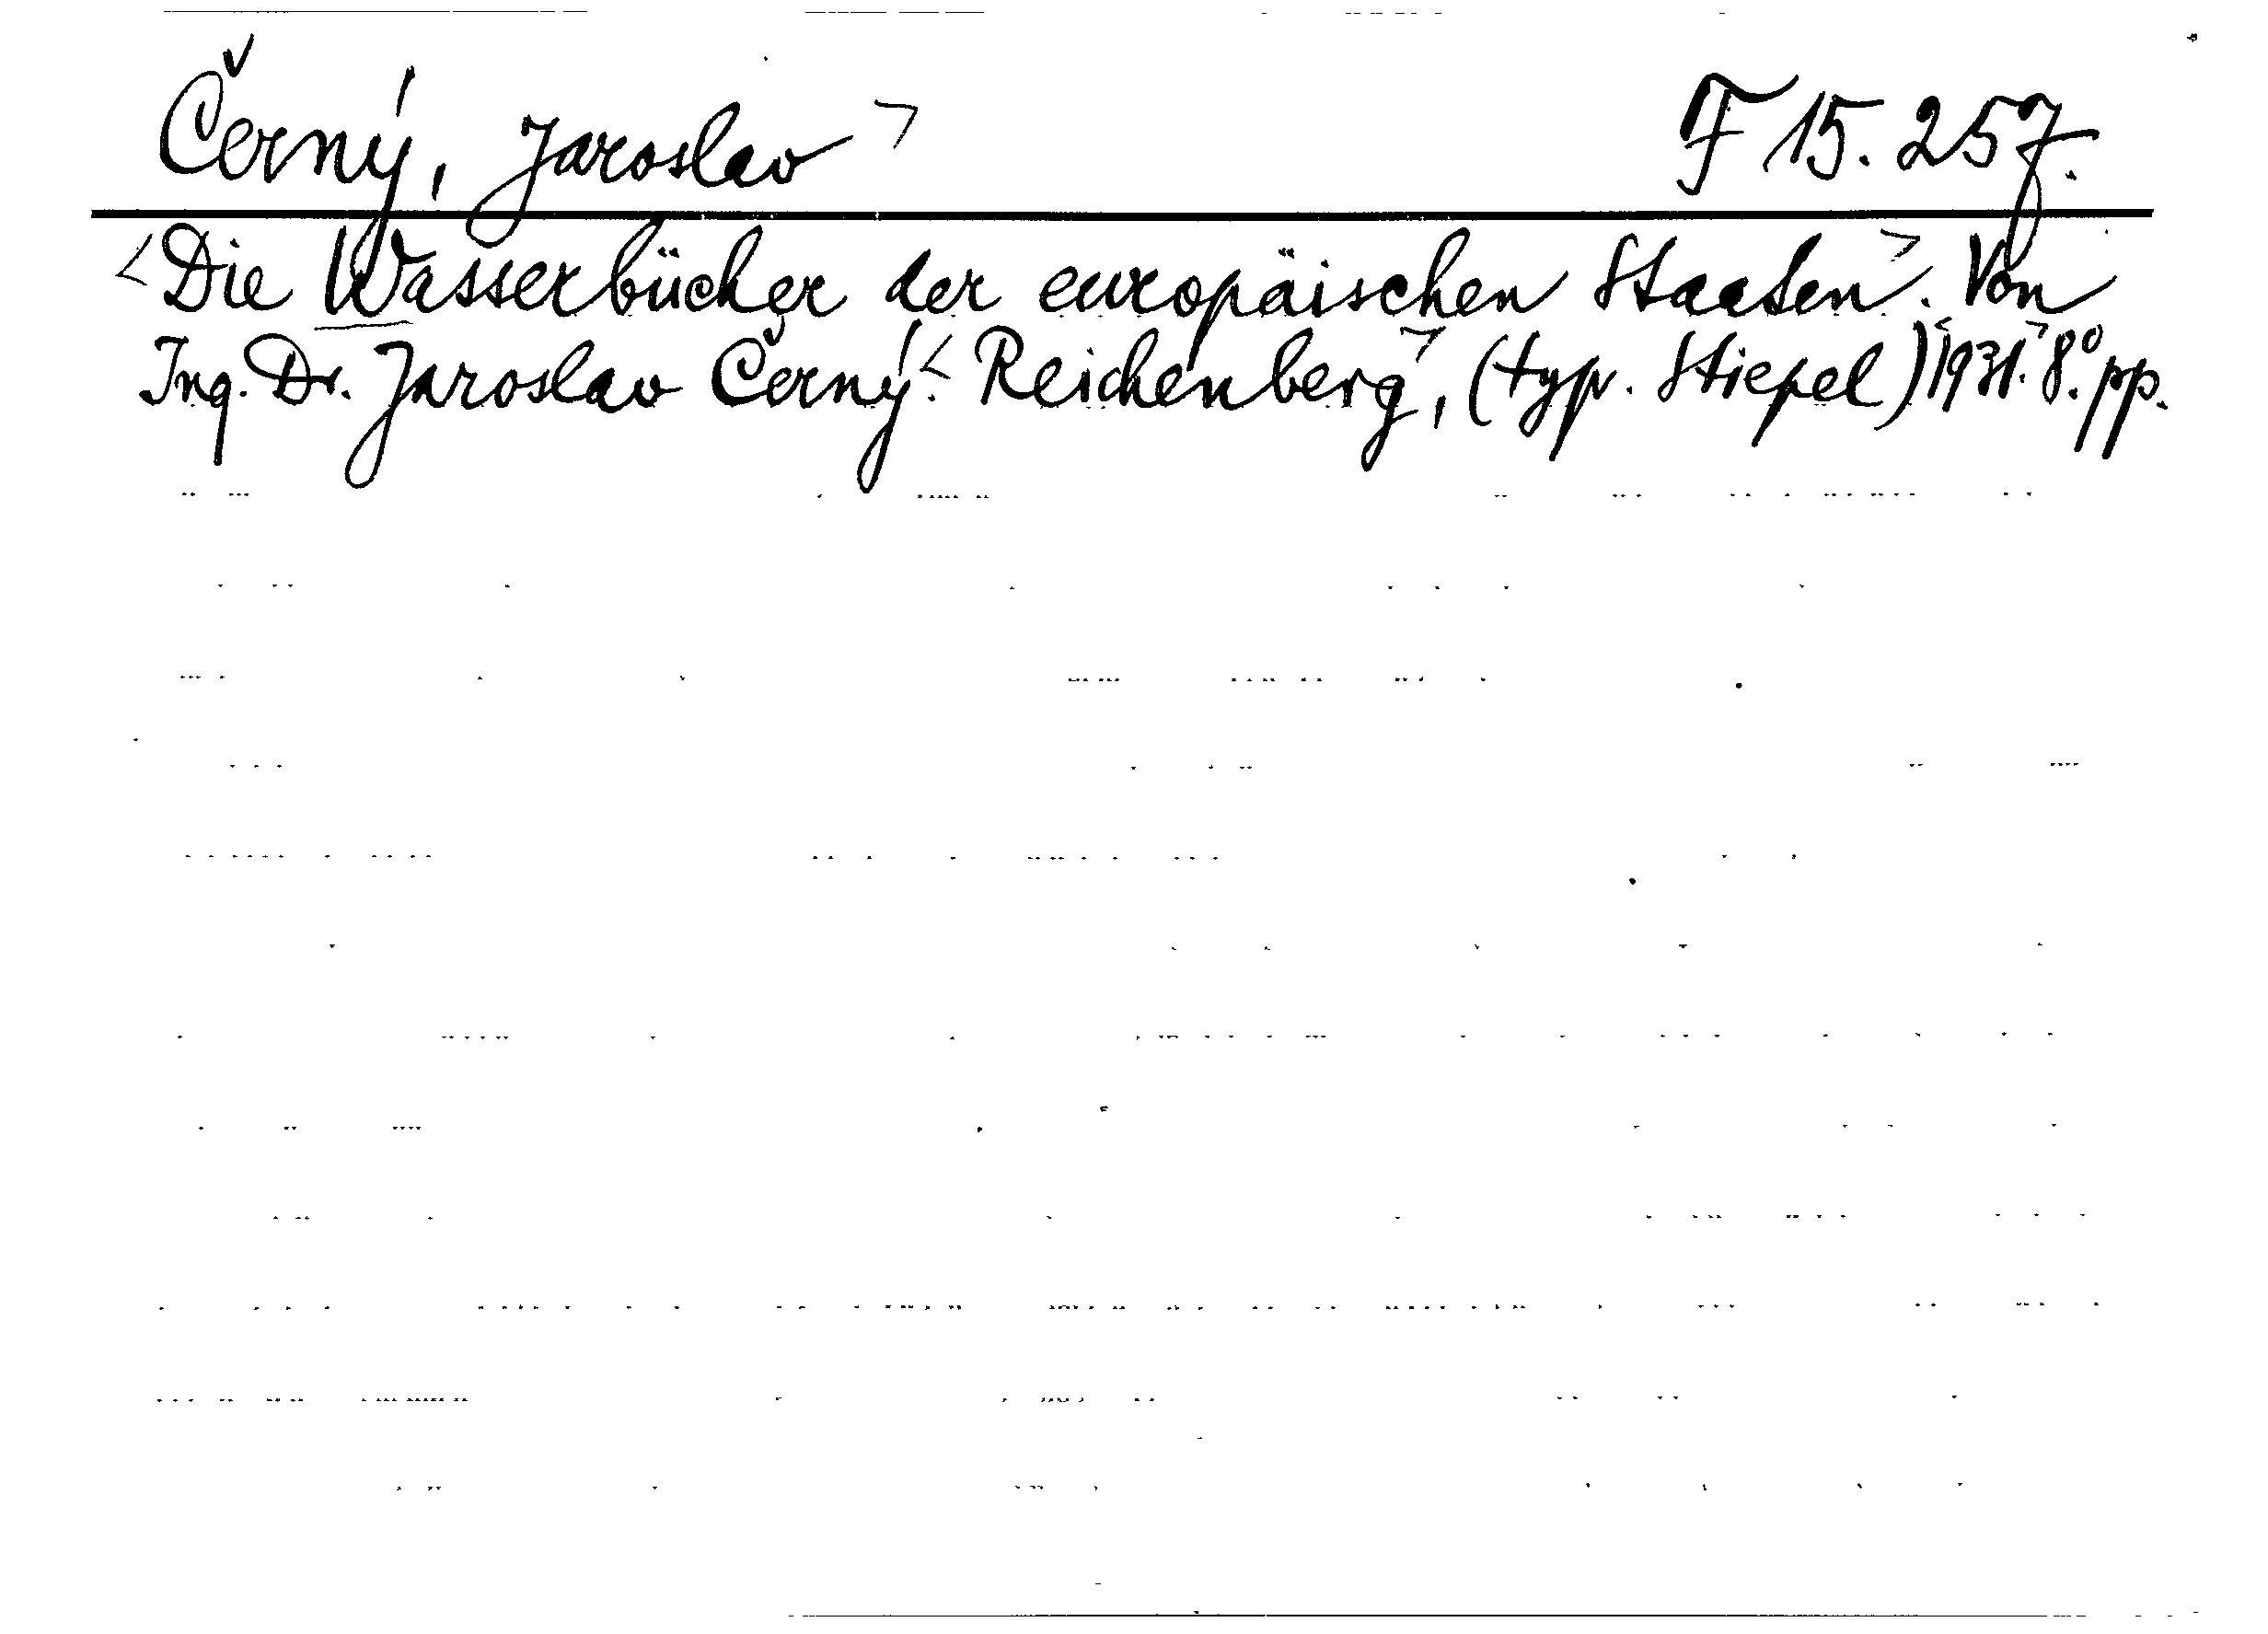 Černý, Jaroslav> F 15.257.
<Die Wasserbücher der europäischen Staaten>. Von
Ing. Dr. Jaroslav Černý. <Reichenberg>, (typ. Stiepel) <1931.> 8.° pp.